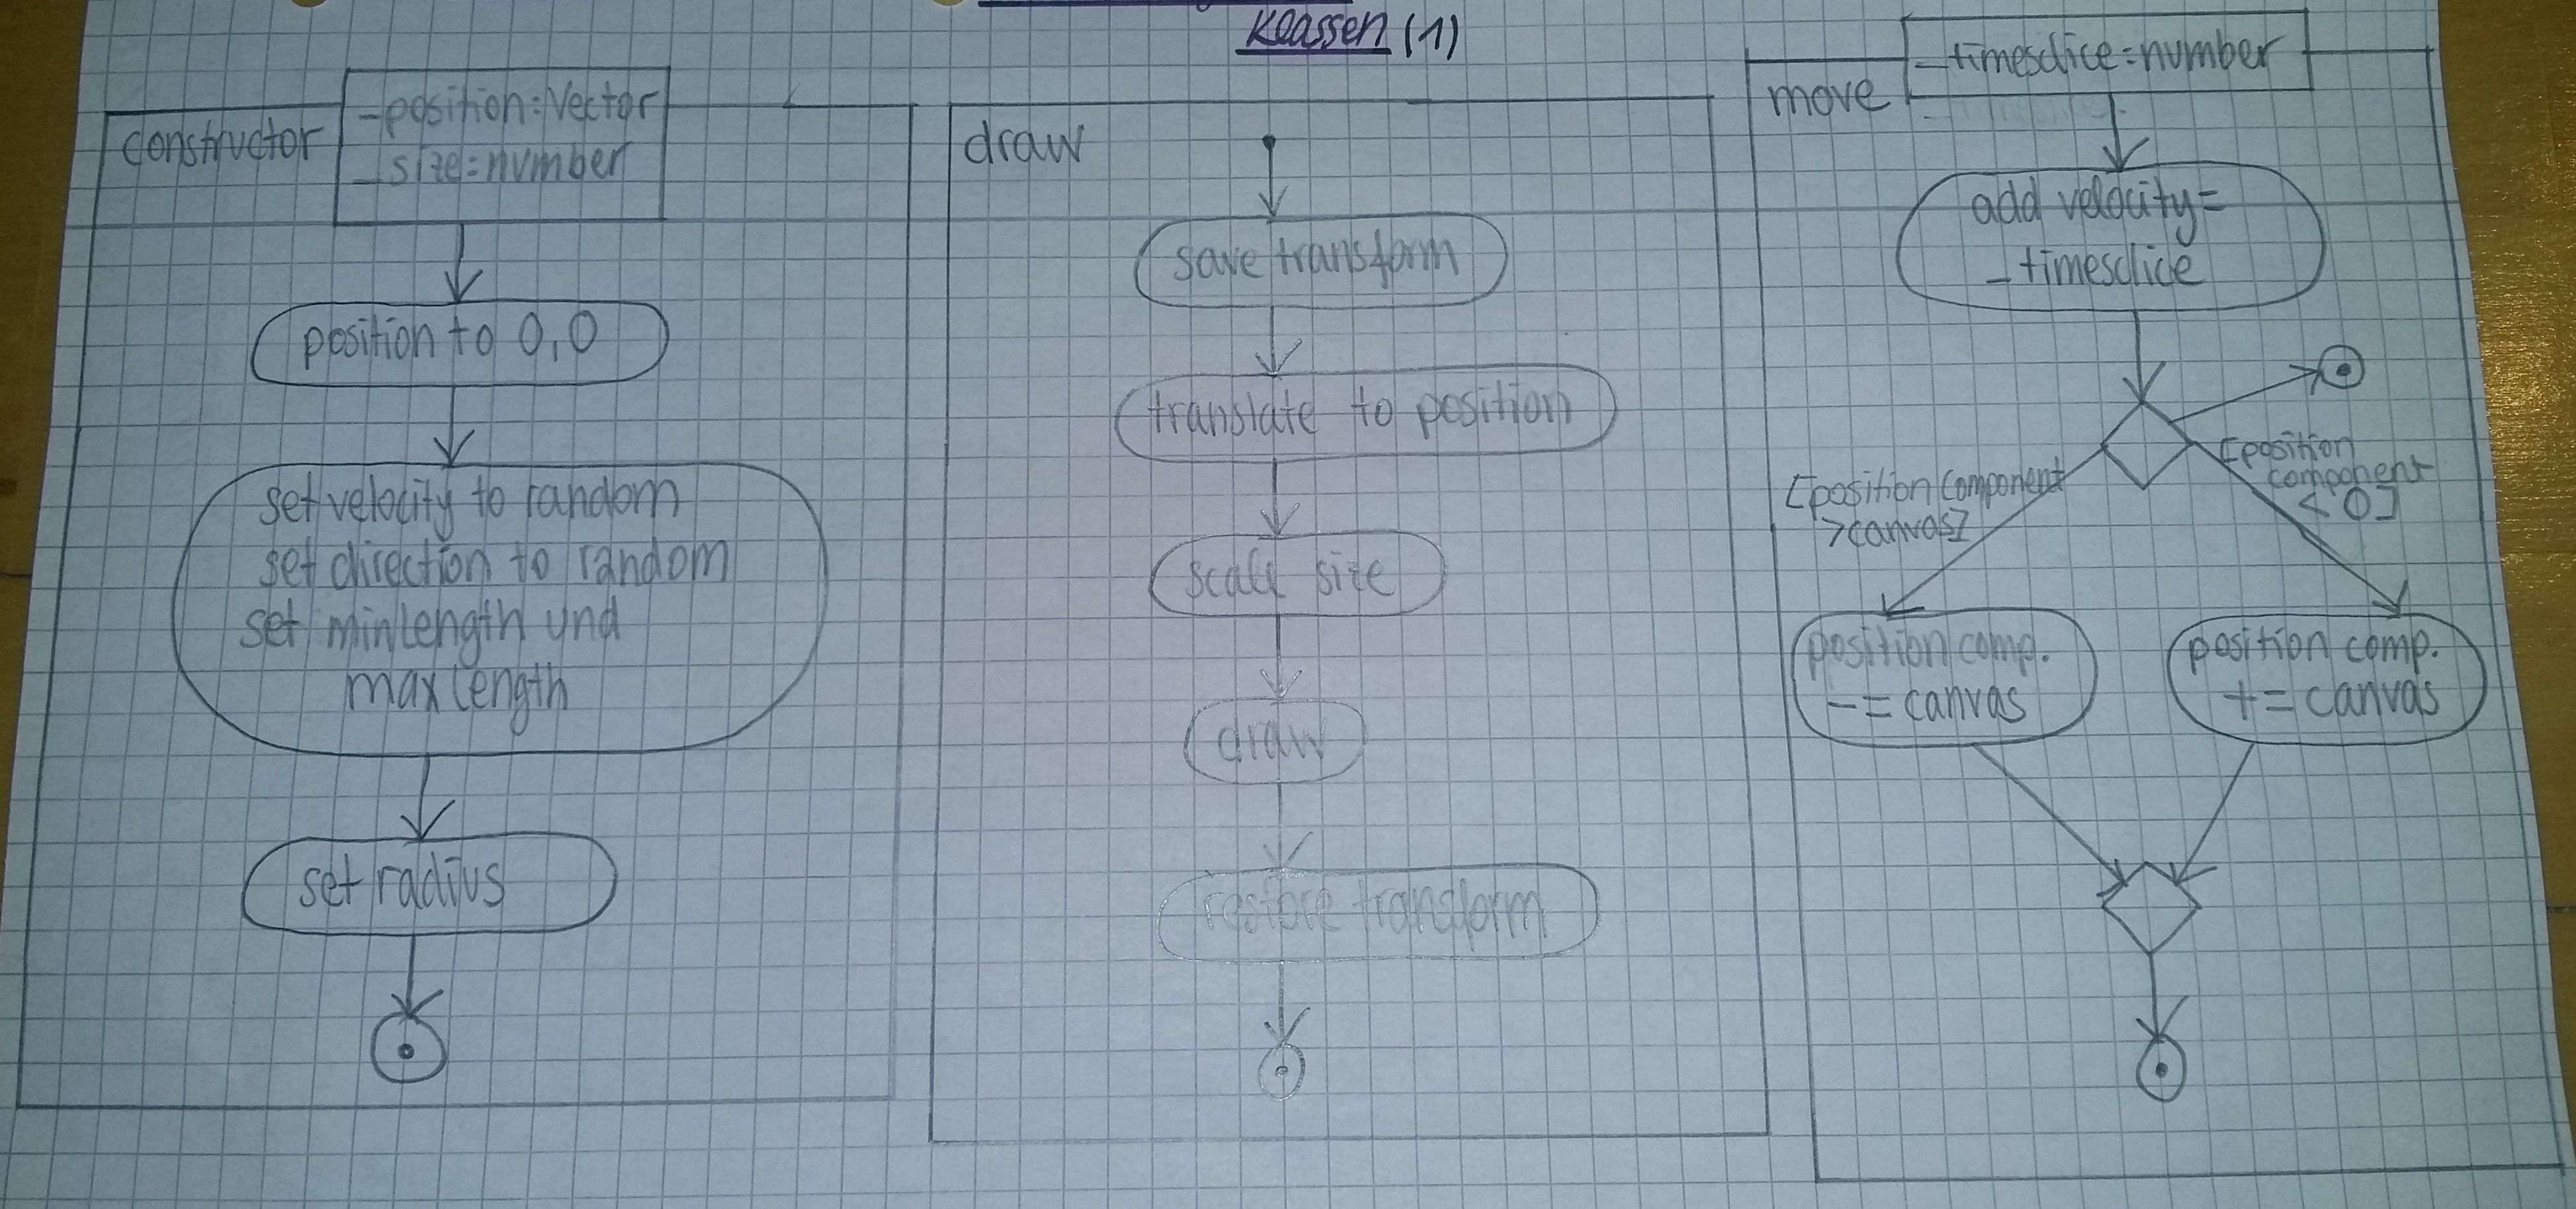 Klassen (1)
constructor
_position:Vector
_size:number
position to 0,0
set velocity to random
set direction to random
set minLength und
maxLength
set radius
draw
save transform
translate to position
scale size
draw
restore transform
move
_timesclice:number
add velocity=
_timesclice
[position component
>canvas]
[position
component
< 0]
position comp.
-= canvas
position comp.
+= canvas